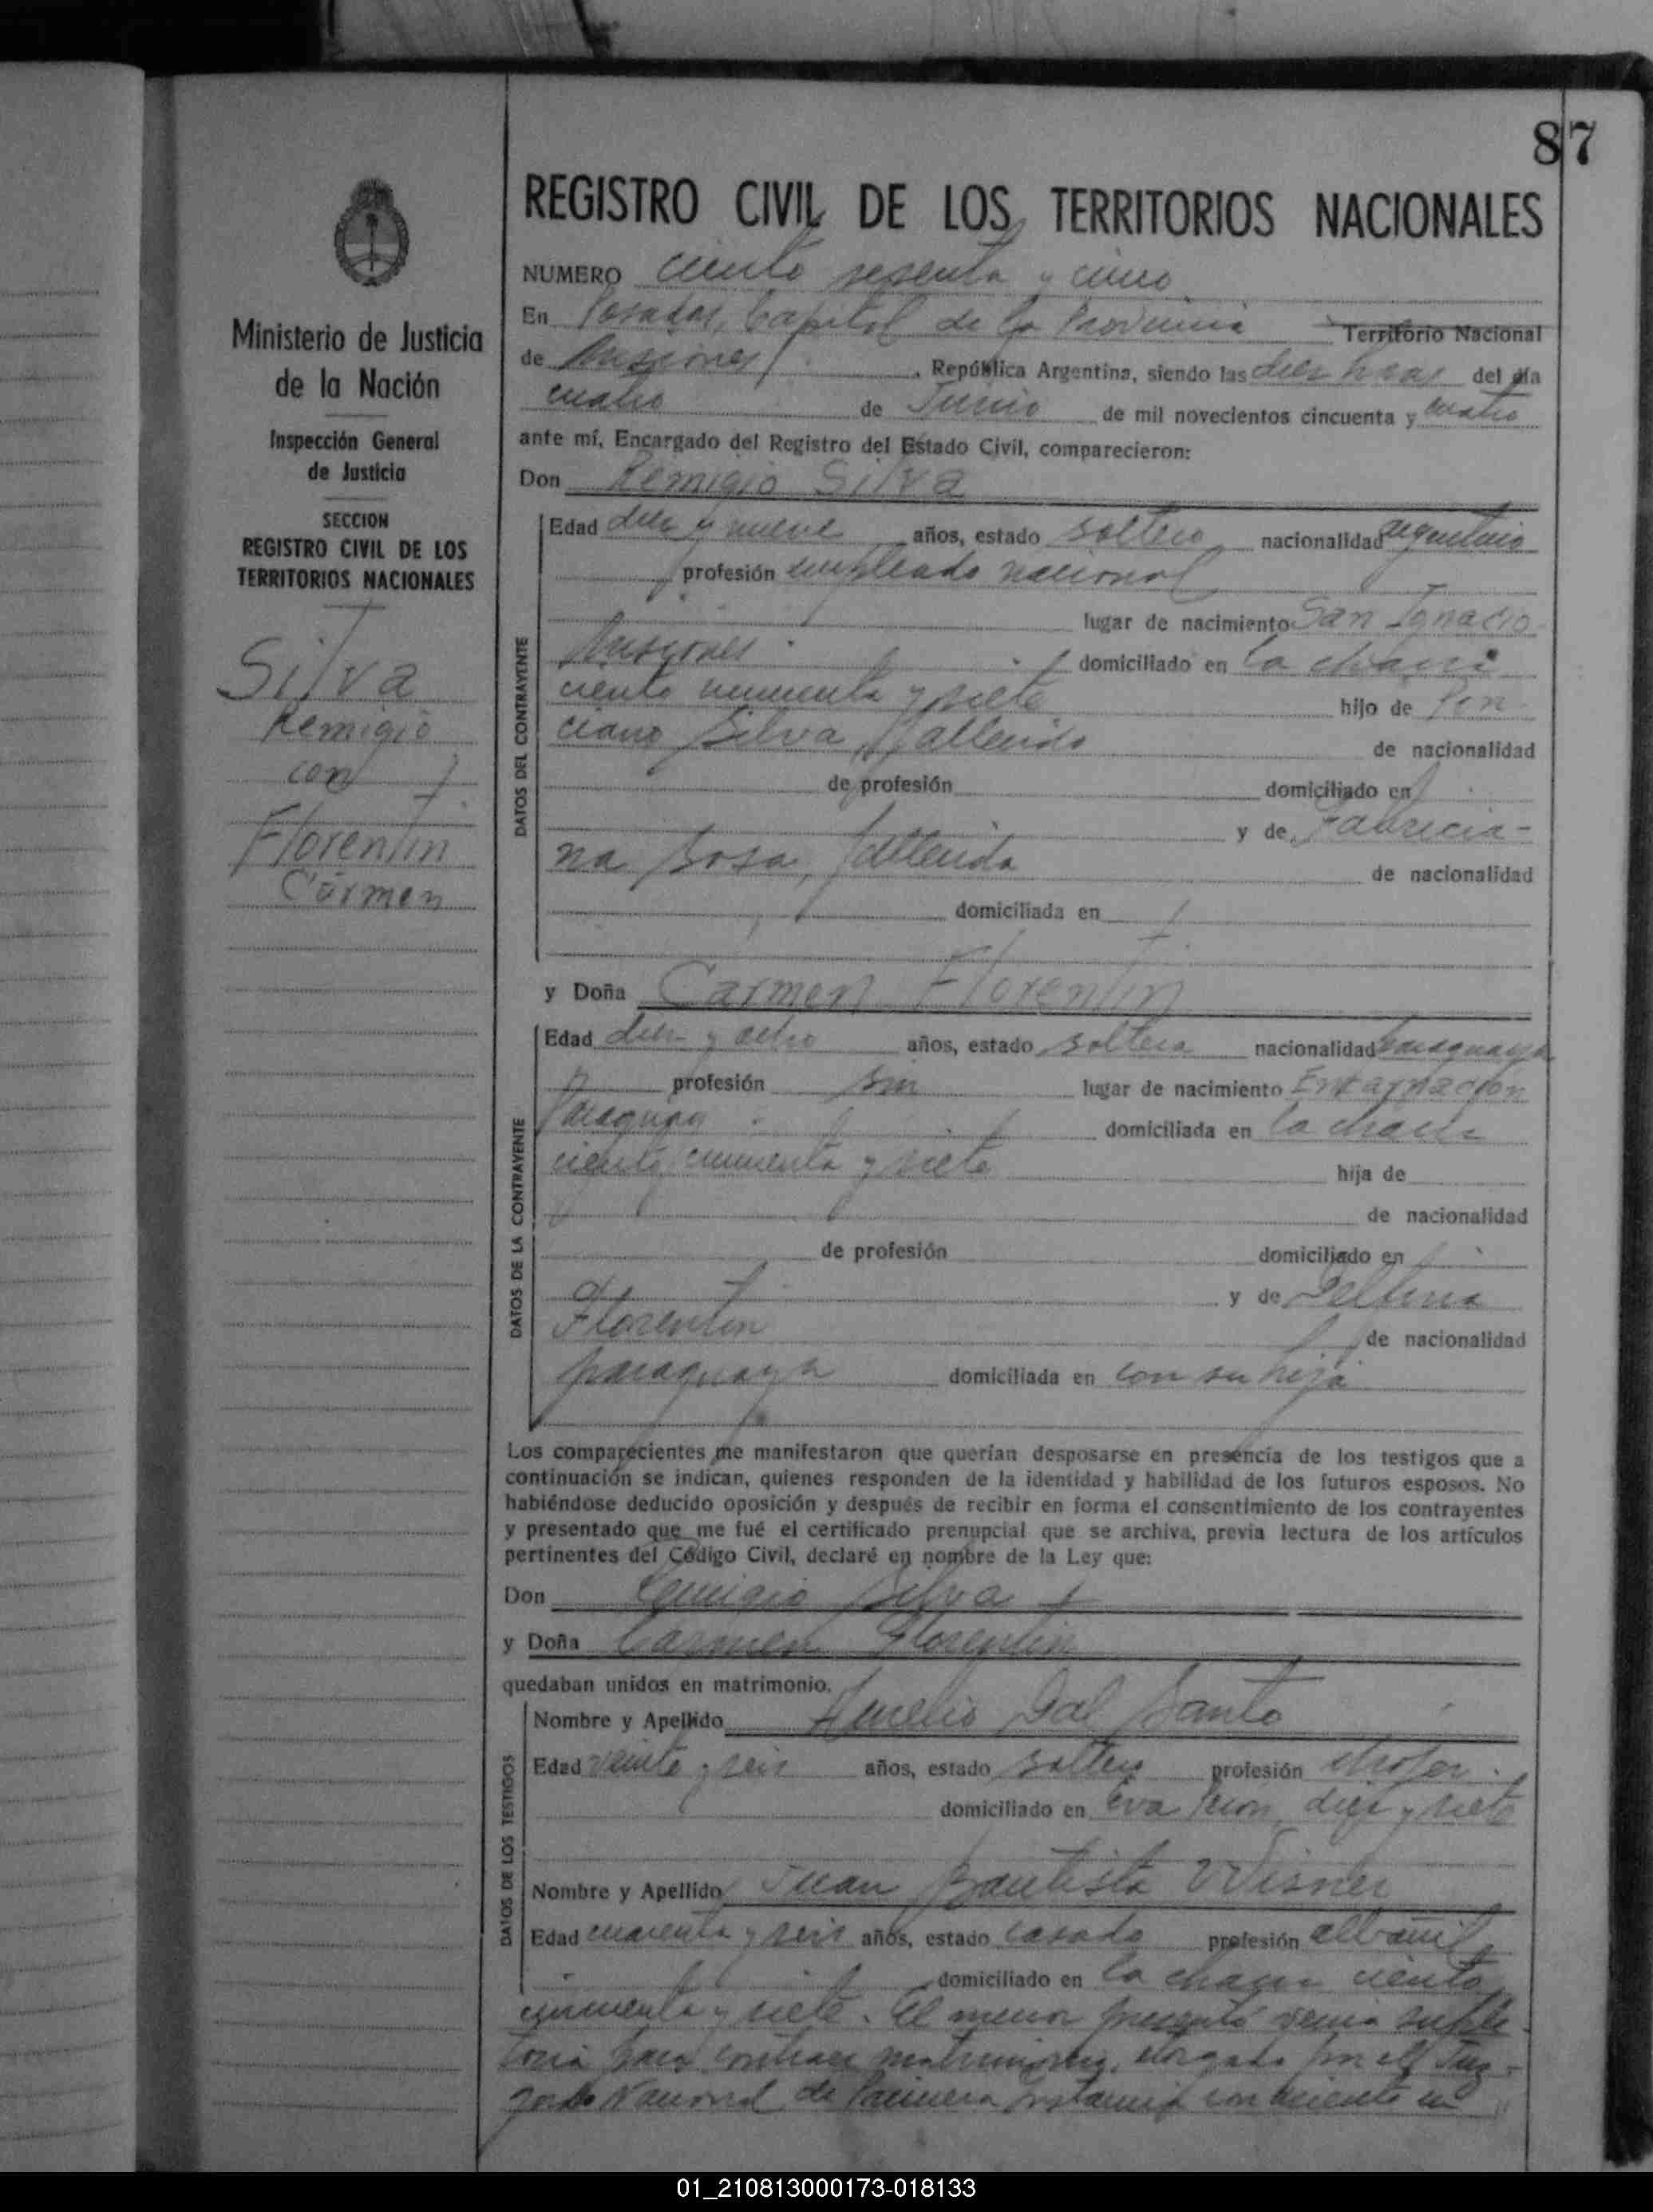 87
REGISTRO CIVIL DE LOS TERRITORIOS NACIONALES
Ministerio de Justicia
de la Nación
Inspección General
de Justicia
SECCION
REGISTRO CIVIL DE LOS
TERRITORIOS NACIONALES
Silva
Remigio
con
Florentin
Carmen
NUMERO ciento sesenta y cinco
En Posadas, Capital de la Provincia Territorio Nacional
de Misiones, República Argentina, siendo las diez horas del día
cuatro de Junio de mil novecientos cincuenta y cuatro
ante mí, Encargado del Registro del Estado Civil, comparecieron:
Don Remigio Silva
DATOS DEL CONTRAYENTE
Edad diez y nueve años, estado soltero nacionalidad argentino
profesión empleado nacional
lugar de nacimiento San Ignacio
Misiones domiciliado en la chacra
ciento cincuenta y siete hijo de Pon
ciano Silva, fallecido de nacionalidad
de profesión domiciliado en
y de Fabricia-
na Sosa, fallecida de nacionalidad
domiciliada en
y Doña Carmen Florentin
DATOS DE LA CONTRAYENTE
Edad diez y ocho años, estado soltera nacionalidad paraguaya
profesión sin lugar de nacimiento Encarnación
Paraguay domiciliada en la chacra
ciento cincuenta y siete hija de
de nacionalidad
de profesión domiciliado en
y de Delfina
Florentin de nacionalidad
paraguaya domiciliada en con su hija
Los comparecientes me manifestaron que querían desposarse en presencia de los testigos que a
continuación se indican, quienes responden de la identidad y habilidad de los futuros esposos. No
habiéndose deducido oposición y después de recibir en forma el consentimiento de los contrayentes
y presentado que me fué el certificado prenupcial que se archiva, previa lectura de los artículos
pertinentes del Código Civil, declaré en nombre de la Ley que:
Don Remigio Silva
y Doña Carmen Florentin
quedaban unidos en matrimonio.
DATOS DE LOS TESTIGOS
Nombre y Apellido Aurelio Dal Santo
Edad veinte y seis años, estado soltero profesión chofer
domiciliado en Eva Peron diez y siete
Nombre y Apellido Juan Bautista Wisner
Edad cuarenta y seis años, estado casado profesión albañil
domiciliado en la chacra ciento
cincuenta y siete. El menor presentó venia suple
toria para contraer matrimonio, otorgada por el Juz-
gado Nacional de Primera Instancia con asiento en
01_210813000173-018133